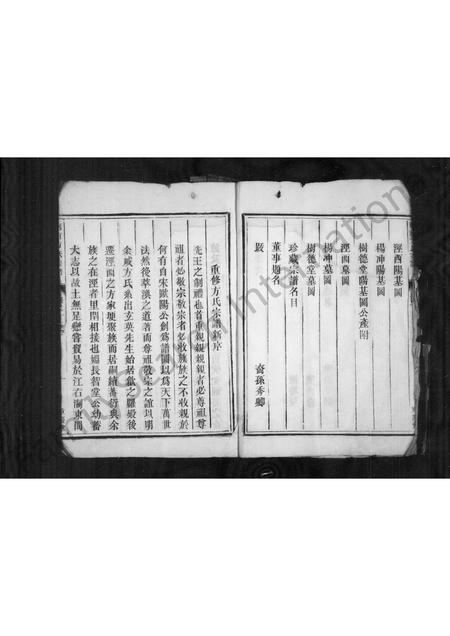 涇西陽基圖
楊冲陽基圖
樹德堂陽基圖公產附
涇西墓圖
楊冲墓圖
樹德堂墓圖
珍藏宗譜名目
董事題名
跋
裔孫秀卿
重修方氏宗譜新序
先王之制禮也首重親親親親者必尊祖尊
祖者必敬宗敬宗者必收族族之不收親於
何有自宋歐陽公創為譜圖以為天下萬世
法然後萃渙之道著而尊祖敬宗之誼以明
余咸方氏系出玄英先生始居歙之
遷涇西之方家埂聚族而居嗣續蕃衍與余
族之在涇者里閈相接也 長智堂公幼蓄
大志以故土無足戀嘗貿易於江右湖東間